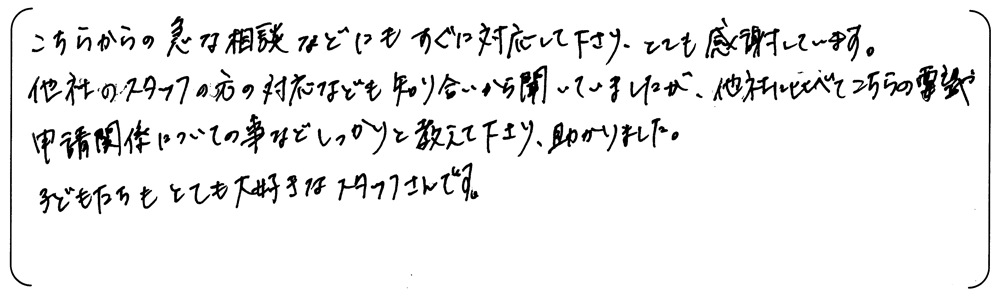 こちらからの急な相談などにもすぐに対応して下さり、とても感謝しています。
他社のスタッフの方の対応なども知り合いから聞いていましたが、他社に比べてこちらの電話や
申請関係についての事などしっかりと教えて下さり、助かりました。
子どもたちもとても大好きなスタッフさんです。